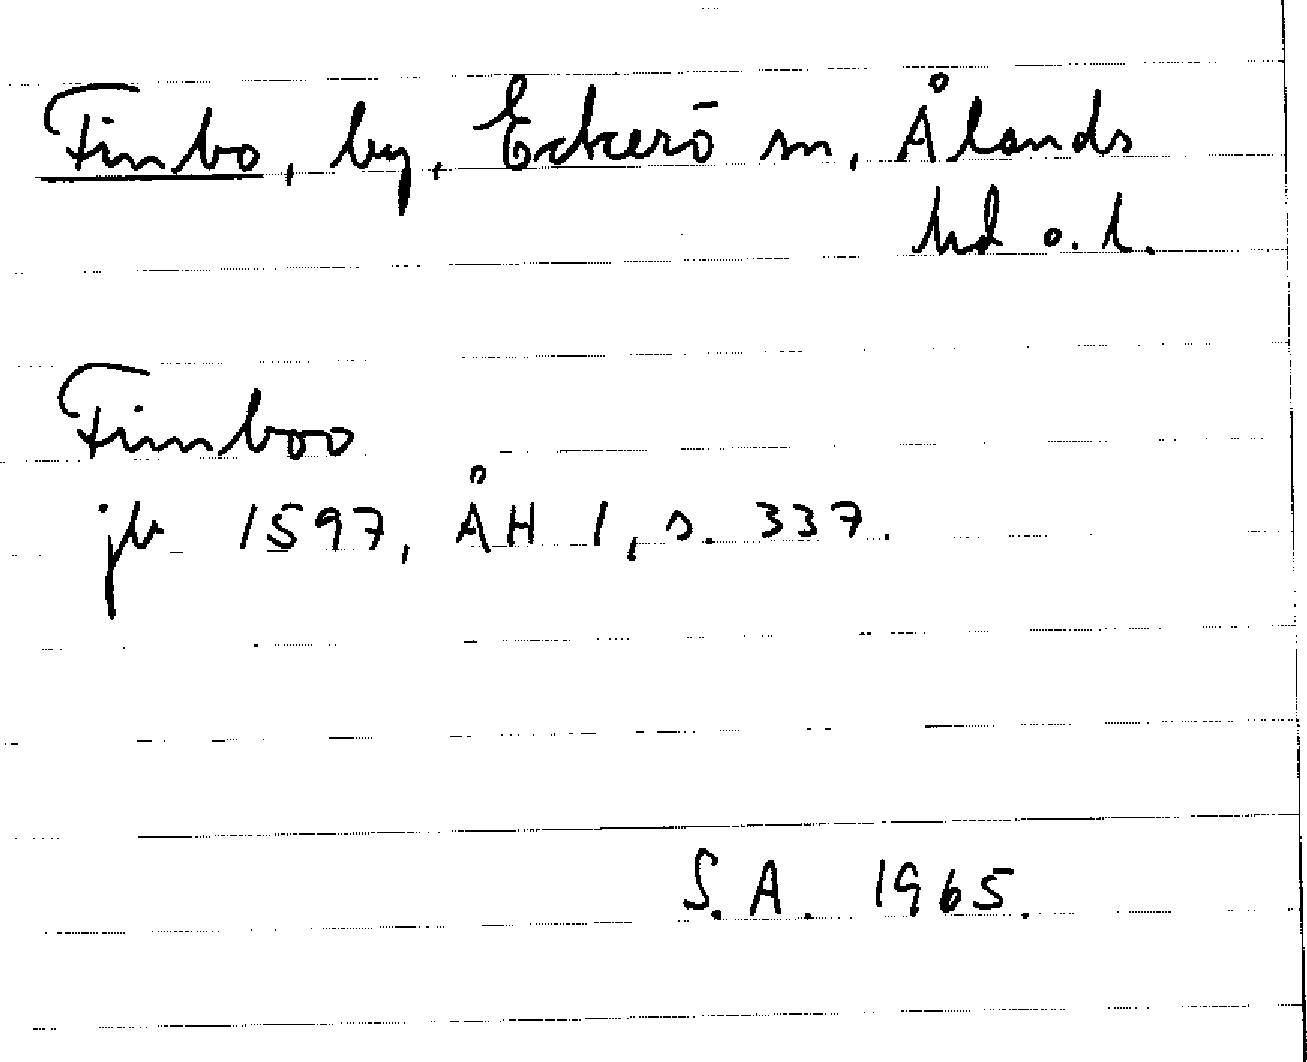 Finbo, by, Eckerö sn, Ålands
hd o. l.
Finboo
jb 1597, ÅH 1, s. 337.
S. A. 1965.